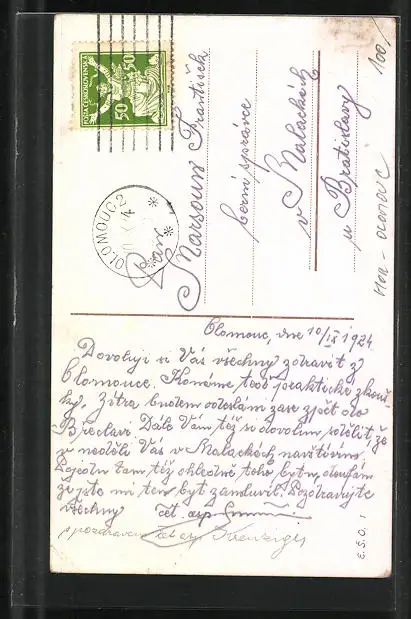 POŠTA ČESKOSLOVENSKÁ
50 50
OLOMOUC 2
Pan
Marsoun František
berní správce
v Malackách
u Bratislavy
100/
Olomouc, dne 10/IX 1924.
Dovoluji si Vás všechny zdravit z
Olomouce. Konáme teď praktické zkouš
ky. Zítra budem odesláni zase zpět do
Břeclavi. Dále Vám též si dovolím sdělit, že
v neděli Vás v Malackách navštívím.
Pojedu tam též ohledně toho bytu, doufám
že jste mi ten byt zamluvil. Pozdravujte
všechny čet. asp.
s pozdravem čet asp
E.Š.O.